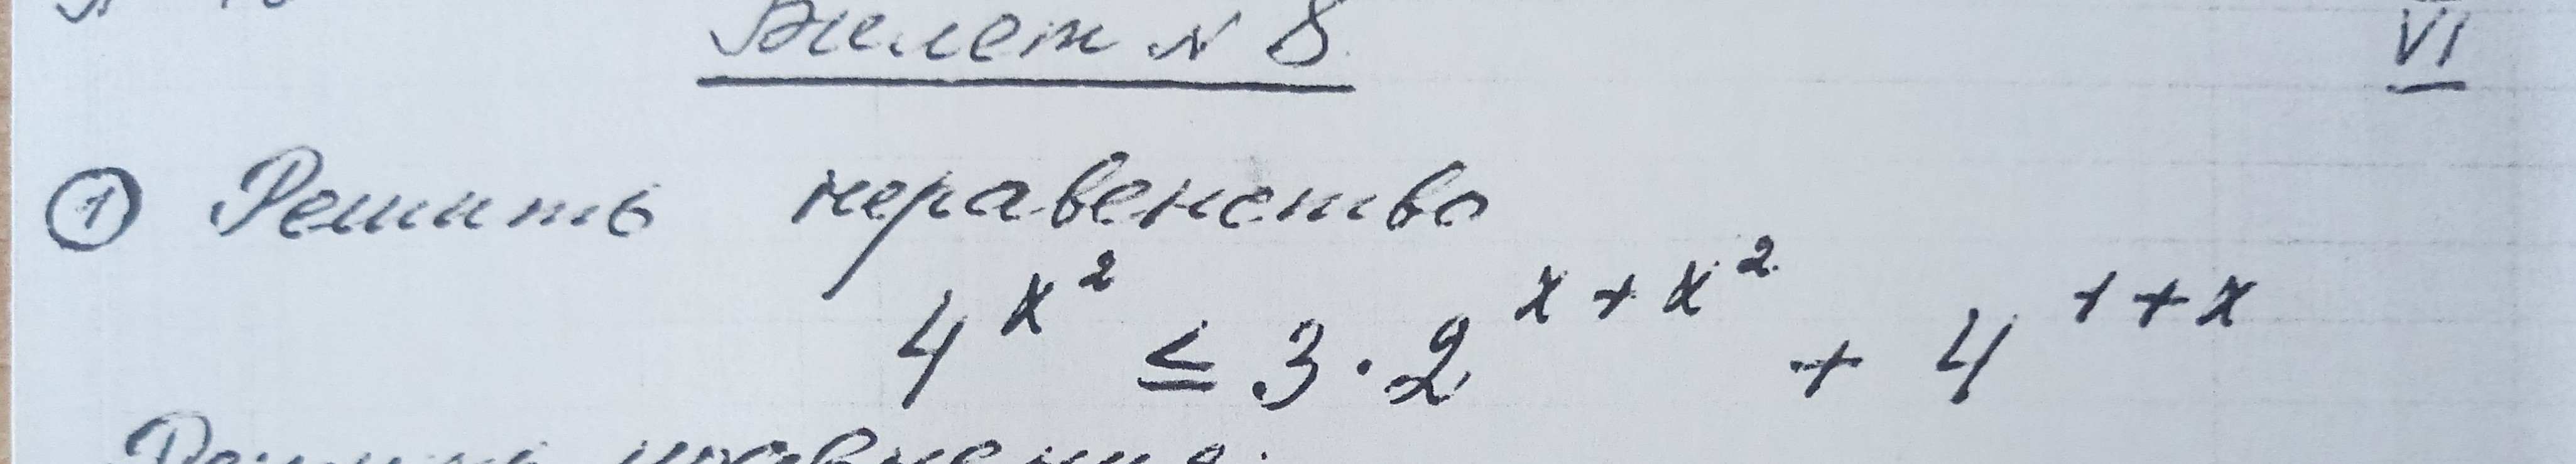 Билет N 8.
VI
① Решить неравенство
4^{x^2} ≤ 3 · 2^{x + x^2} + 4^{1 + x}